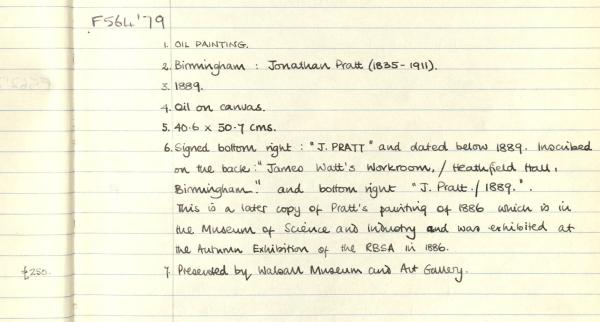 F564'79
1. OIL PAINTING.
2. Birmingham : Jonathan Pratt (1835-1911).
3. 1889.
4. Oil on canvas.
5. 40.6 x 50.7 cms.
6. Signed bottom right : "J. PRATT" and dated below 1889. Inscribed
on the back: "James Watt's Workroom, / Heathfield Hall,
Birmingham." and bottom right "J. Pratt. / 1889.".
This is a later copy of Pratt's painting of 1886 which is in
the Museum of Science and Industry and was exhibited at
the Autumn Exhibition of the RBSA in 1886.
£250. 7. Presented by Walsall Museum and Art Gallery.